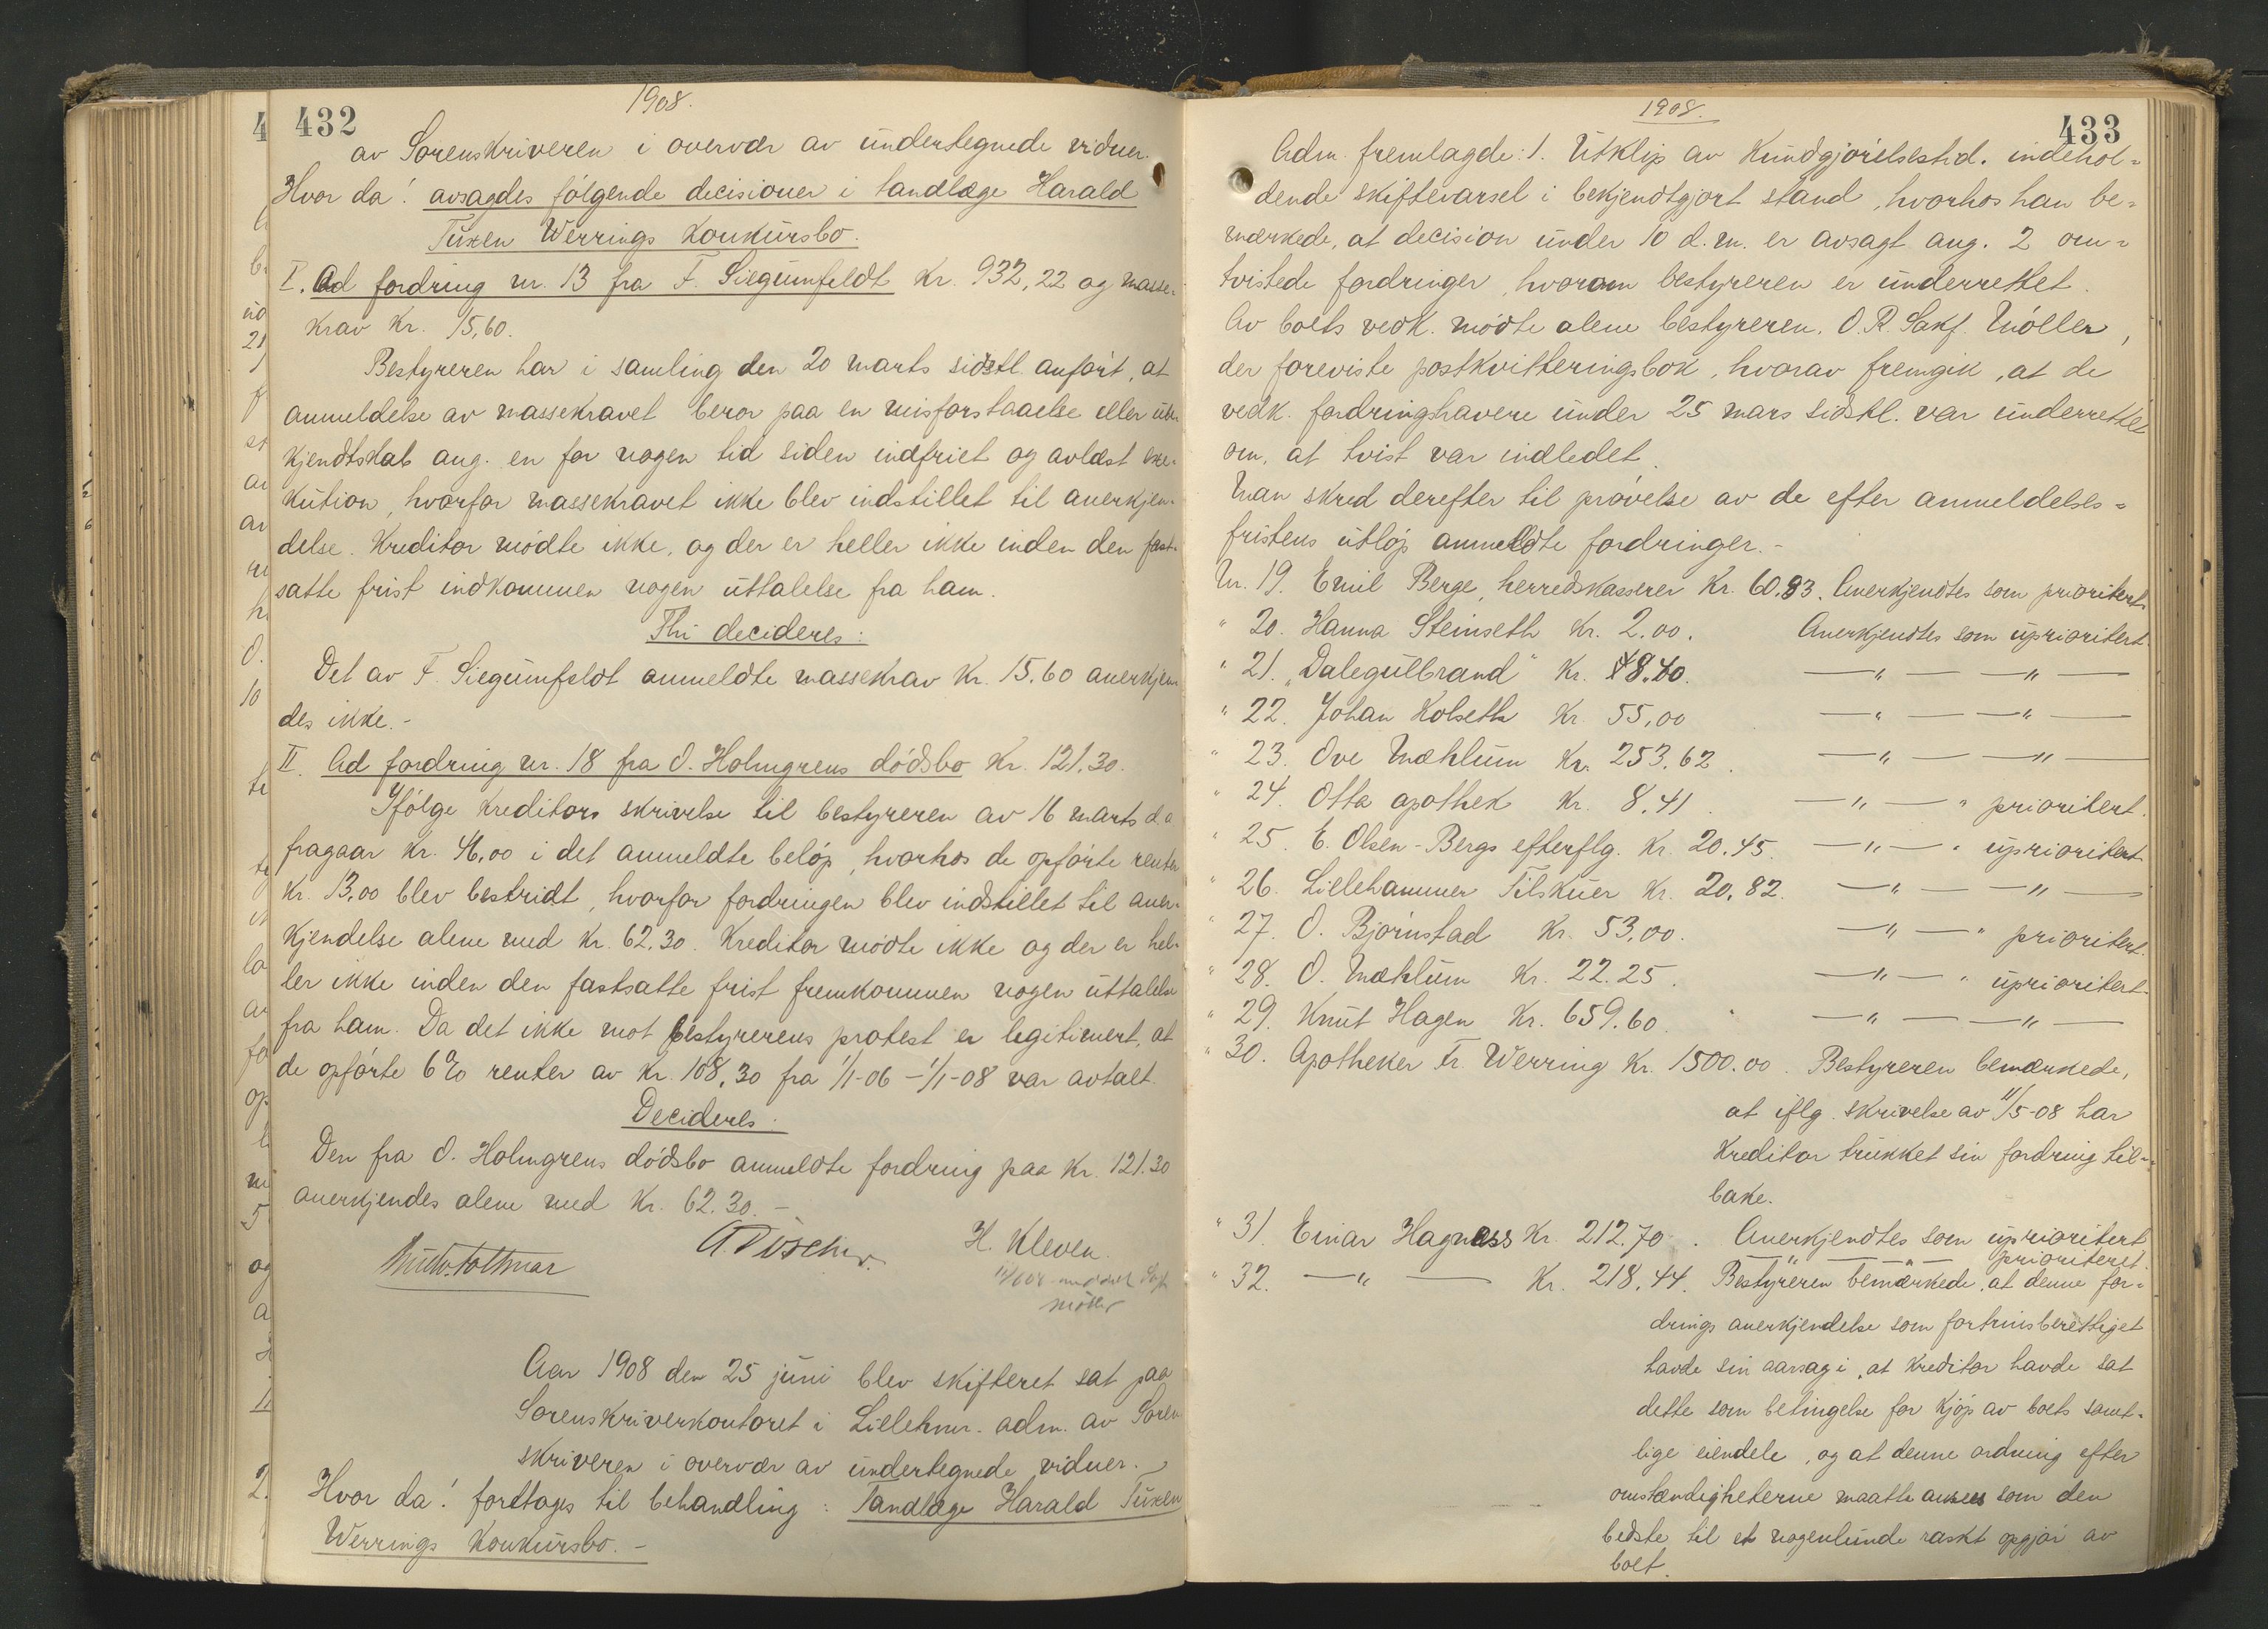 432
1908.
av Sorenskriveren i overvær av undertegnede vidner.
Hvor da! avsagdes følgende decisioner i tandlæge Harald
Tuxen Werrings konkursbo.
I. Ad fordring nr. 13 fra F. Siegumfeldt Kr. 932,22 og masse-
krav Kr. 15,60.
Bestyreren har i samling den 20 marts sidstl. anført, at
anmeldelse av massekravet beror paa en misforstaaelse eller
kjendtskab ang. en for nogen tid siden indfriet og avlæst exe-
kution, hvorfor massekravet ikke blev indstillet til anerkjen-
delse. Kreditor mødte ikke, og der er heller ikke inden den fast-
satte frist indkommen nogen uttalelse fra ham.
Thi decideres:
Det av F. Siegumfeldt anmeldte massekrav Kr. 15.60 anerkjen-
des ikke.-
II. Ad fordring nr. 18 fra O. Holmgrens dødsbo Kr. 121.30.
Ifølge kreditors skrivelse til bestyreren av 16 marts d.a.
fragaar Kr. 46,00 i det anmeldte beløp, hvorhos de opførte renter
Kr. 13,00 blev bestridt, hvorfor fordringen blev indstillet til aner-
kjendelse alene med Kr. 62.30. Kreditor mødte ikke og der er hel-
ler ikke inden den fastsatte frist fremkommen nogen uttalelse
fra ham. Da det ikke mot bestyrerens protest er legitimert, at
de opførte 6% renter av Kr. 108,30 fra 1/1-06 - 1/1-08 var avtalt.
Decideres:
Den fra O. Holmgrens dødsbo anmeldte fordring paa Kr. 121.30
anerkjendes alene med Kr. 62.30.-
H. Kleven.
Møller
Aar 1908 den 25 juni blev skifteret sat paa
Sorenskriverkontoret i Lillehmr. adm. av Soren
skriveren i overvær av undertegnede vidner.
Hvor da! foretages til behandling: Tandlæge Harald Tuxen
Werrings konkursbo.-
433
1908.
Adm. fremlagde: 1. Utklip av Kundgjørelsestid. indehol-
dende skiftevarsel i bekjendtgjort stand, hvorhos han be-
mærkede, at decision under 10 d.m. er avsagt ang. 2 om-
tvistede fordringer, hvorom bestyreren er underrettet.
Av boets vedk. mødte alene bestyreren, O.R. Sakf. Møller,
der foreviste postkvitteringsbok, hvorav fremgik, at de
vedk. fordringshavere under 25 mars sidstl. var underrettet
om, at tvist var indledet.
Man skred derefter til prøvelse av de efter anmeldelses-
fristens utløp anmeldte fordringer.-
Nr. 19. Emil Berge, herredskasserer Kr. 60.83. Anerkjendtes som prioritert.
" 20. Hanna Steinseth Kr. 2.00. Anerkjendtes som uprioritert.
" 21. "Dalegudbrand" Kr. 48.40. — " — — " —
" 22. Johan Kolseth Kr. 55,00 — " — — " —
" 23. Ove Mæhlum Kr. 253.62. — " — — " —
" 24. Otta apothek Kr. 8.41. — " — " prioritert.
" 25. E. Olsen-Bergs efterflg. Kr. 20.45. — " — " uprioritert.
" 26. Lillehammer Tilskuer Kr. 20.82. — " — — " —
" 27. O. Bjørnstad Kr. 53,00. — " — " prioritert.
" 28. O. Mæhlum Kr. 22.25. — " — " uprioritert.
" 29. Knut Hagen Kr. 659.60. — " — — " —
" 30. Apotheker Fr. Werring Kr. 1500.00. Bestyreren bemærkede,
at iflg. skrivelse av 11/5-08 har
kreditor trukket sin fordring til-
bake.
" 31. Einar Hagness Kr. 212.70. Anerkjendtes som uprioritert
— " — — " — prioriteret.
" 32. — " — Kr. 218.44. Bestyreren bemærkede, at denne for-
drings anerkjendelse som fortrinsberettiget
havde sin aarsag i, at kreditor havde sat
dette som betingelse for kjøp av boets samt-
lige eiendele, og at denne ordning efter
omstændigheterne maatte ansees som den
bedste til et nogenlunde raskt opgjør av
boet.